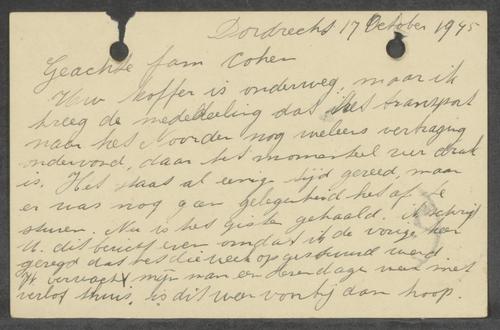 Dordrecht 17 October 1945
Geachte fam Cohen
Uw koffer is onderweg, maar ik
kreeg de mededeeling dat het transport
naar het Noorden nog weleens vertraging
ondervond, daar het momenteel zeer druk
is. Het staat al eenige tijd gereed, maar
er was nog geen gelegenheid het af te
sturen. Nu is het gister gehaald. Ik schrijf
U dit even omdat ik de vorige keer
gezegd dat het die week opgestuurd werd
Ik verwacht mijn man een dezer dagen met
verlof thuis, is dit weer voorbij dan hoop.